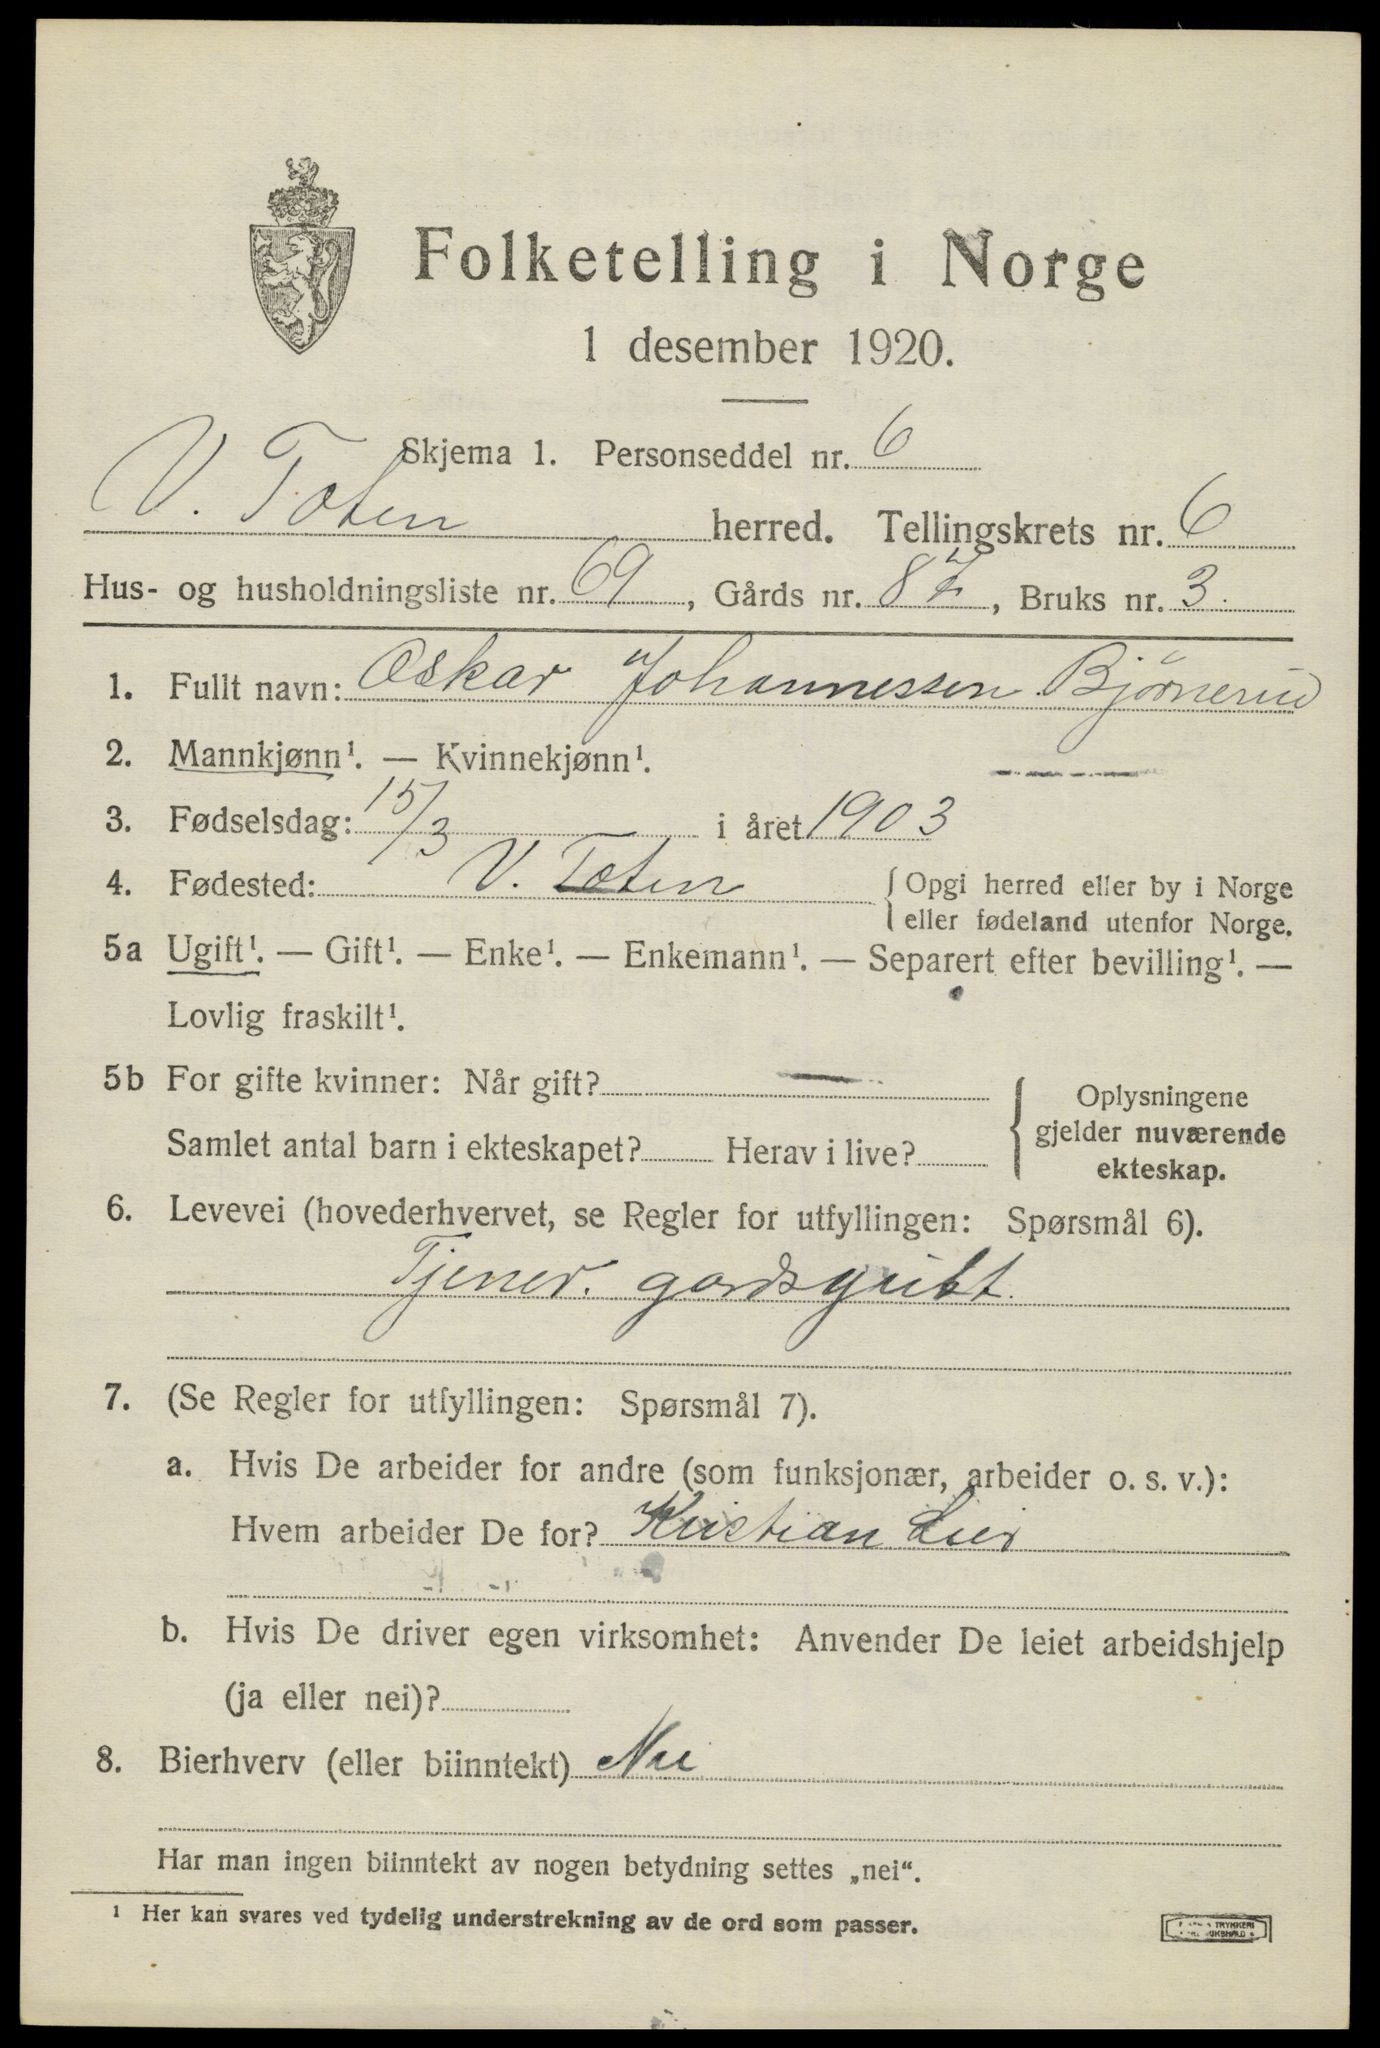 Folketelling i Norge
1 desember 1920.
Skjema 1. Personseddel nr. 6
V. Toten herred. Tellingskrets nr. 6
Hus- og husholdningsliste nr. 69, Gårds nr. 87, Bruks nr. 3.
1. Fullt navn: Oskar Johannessen Bjørnerud
2. Mannkjønn¹. — Kvinnekjønn¹.
3. Fødselsdag: 15/3 i året 1903
4. Fødested: V. Toten { Opgi herred eller by i Norge
eller fødeland utenfor Norge.
5a Ugift¹. — Gift¹. — Enke¹. — Enkemann¹. — Separert efter bevilling¹. —
Lovlig fraskilt¹.
5b For gifte kvinner: Når gift? —
Samlet antal barn i ekteskapet? Herav i live?
{ Oplysningene
gjelder nuværende
ekteskap.
6. Levevei (hovederhvervet, se Regler for utfyllingen: Spørsmål 6).
Tjener. gardsgutt.
7. (Se Regler for utfyllingen: Spørsmål 7).
a. Hvis De arbeider for andre (som funksjonær, arbeider o. s. v.):
Hvem arbeider De for? Kristian
b. Hvis De driver egen virksomhet: Anvender De leiet arbeidshjelp
(ja eller nei)?
8. Bierhverv (eller biinntekt) Nei
Har man ingen biinntekt av nogen betydning settes „nei“.
¹ Her kan svares ved tydelig understrekning av de ord som passer.